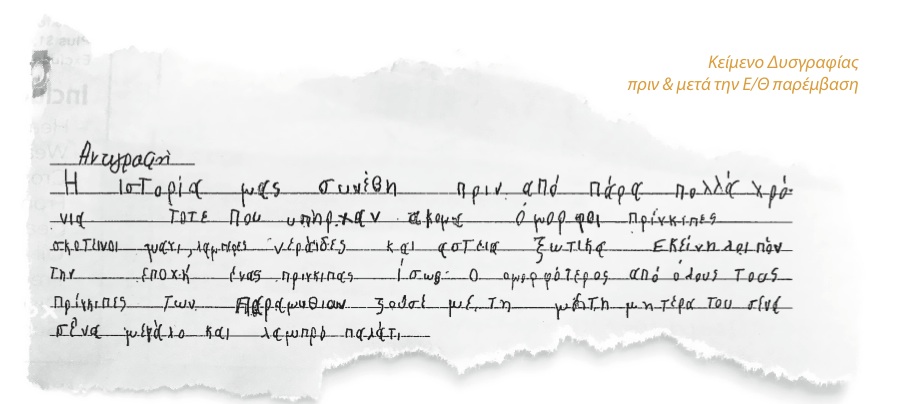 Κείμενο Δυσγραφίας
πριν & μετά την Ε/Θ παρέμβαση
Αντιγραφή
Η ιστορία μας συνέβη πριν από πάρα πολλά χρό-
νια τοτε που υπηρχαν ακομα όμορφοι πρίγκιπες
σκοτεινοι νεράιδες και αστεια ξωτικα Εκείνη λοιπόν
την εποχή ένας πριγκιπας ίσως ο ομορφότερος από όλους τους
πρίγκιπες των παραμυθιων ζούσε με τη μητέρα του σένα
σένα μεγάλο και λαμπρό παλάτι